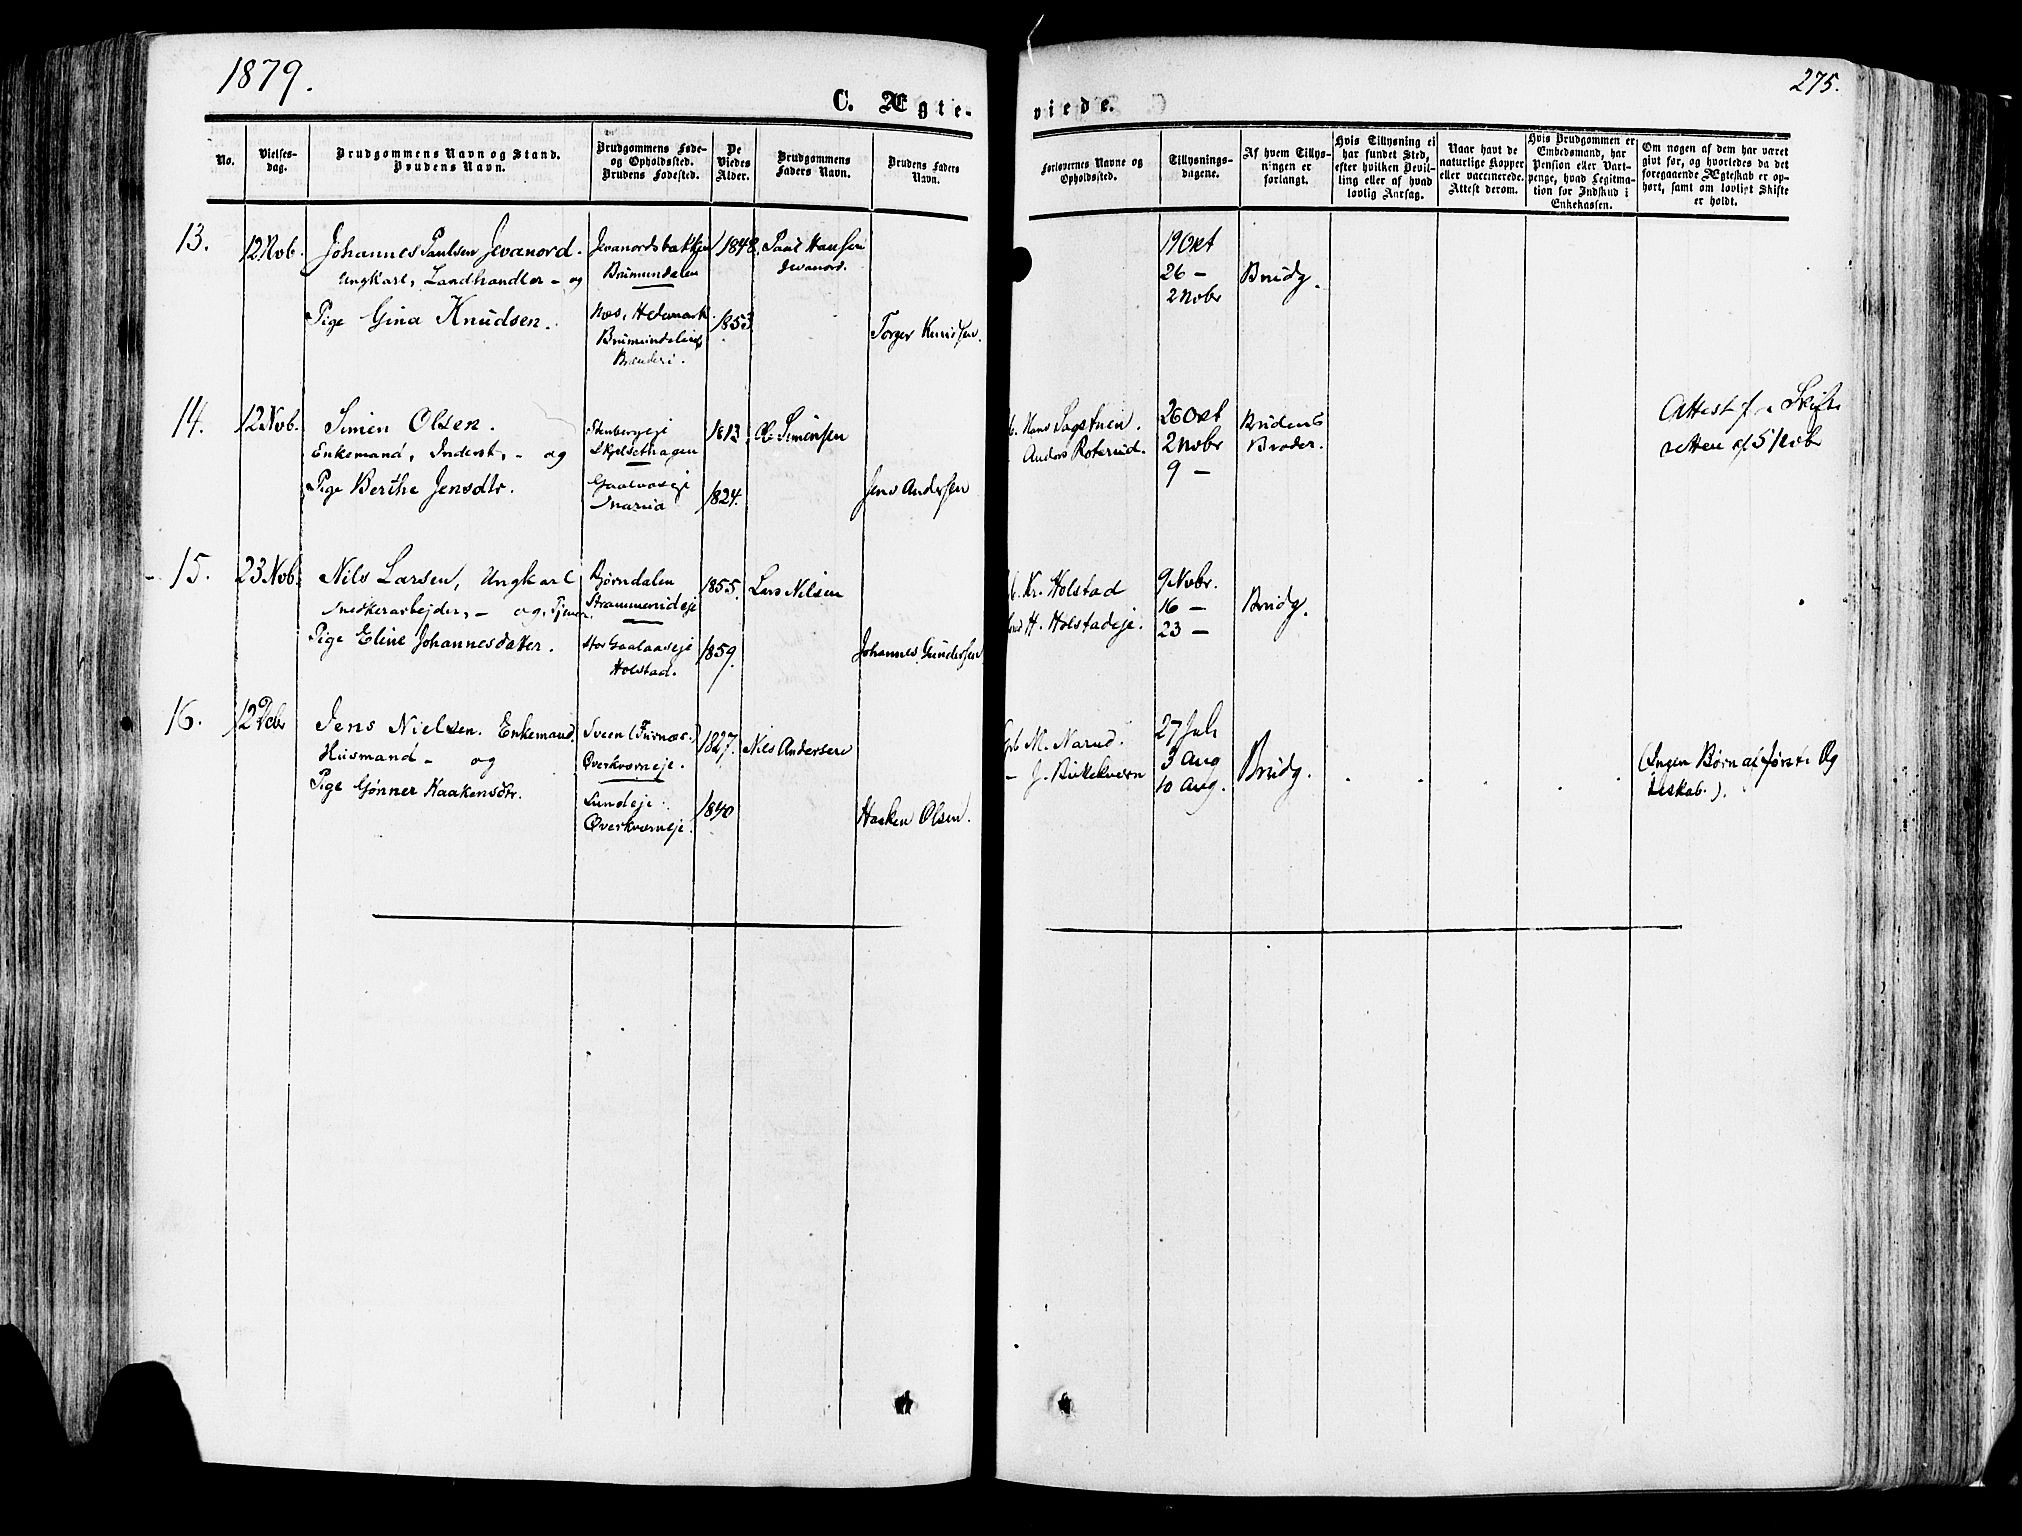 1879.
275.
C. Ægte-
viede.
No.
Vielses-
dag.
Brudgommens Navn og Stand.
Brudens Navn.
Brudgommens Føde-
og Opholdssted.
Brudens Fødested.
De
Viedes
Alder.
Brudgommens
Faders Navn.
Brudens Faders
Navn.
Forlovernes Navne og
Opholdssted.
Tillysnings-
dagene.
Af hvem Tillys-
ningen er
forlangt.
Hvis Tillysning ei
har fundet Sted,
efter hvilken Bevil-
ling eller af hvad
lovlig Aarsag.
Naar havt de
naturlige Kopper
eller vaccinerede.
Attest derom.
Hvis Brudgommen er
Embedsmand, har
Pension eller Vart-
penge, hvad Legitima-
tion for Indskud i
Enkekassen.
Om nogen af dem har været
givt før, og hvorledes da det
foregaaende Ægteskab er op-
hørt, samt om lovligt Skifte
er holdt.
13.
12 Nov.
Johannes Paulsen Jevanord.
Ungkarl, Landhandler - og
Pige Gina Knudsen.
Jevanordsbakken
Brumundalen
Næs, Hedemark.
Brumundalens
Brænderi.
1848.
1853.
Paul Hansen
Jevanord.
Torger Knudsen.
19 Okt
26 -
2 Nobr
Brudg.
14.
12 Nov.
Simen Olsen.
Enkemand, Inderst, - og
Pige Berthe Jensdtr.
Stenbergeje
Skjelsethagen
Gaalaaseje
1813
1824.
Ole Simensen
Jens Andersen
Hans Sagstuen.
Anders Roterud.
26 Okt
2 Nobr
9 -
Brudens
Broder.
Attest f. Skifte
retten af 5 Nobr
15.
23 Nob.
Nils Larsen, Ungkarl
Snedkerarbejder, - og, Tjener.
Pige Eline Johannesdatter.
Bjørndalen
Strammerudeje
Stor Gaalaaseje
Holstad.
1855.
1859.
Lars Nilsen
Johannes Gundersen
Kr. Holstad
H. Holstadeje.
9 Nobr.
16 -
23 -
Brudg.
16.
12 Debr
Jens Nielsen. Enkemand.
Husmand - og
Pige Gønner Haakensdtr.
Sveen (Furnæs.)
Øverkværneje.
Lundeje.
Øverkværneje.
1827.
1840
Nils Andersen
Haaken Olsen.
M. Narud.
- J. Birkekværn
27 Juli
3 Aug
10 Aug.
Brudg.
(Ingen Børn af første Æg
teskab.).